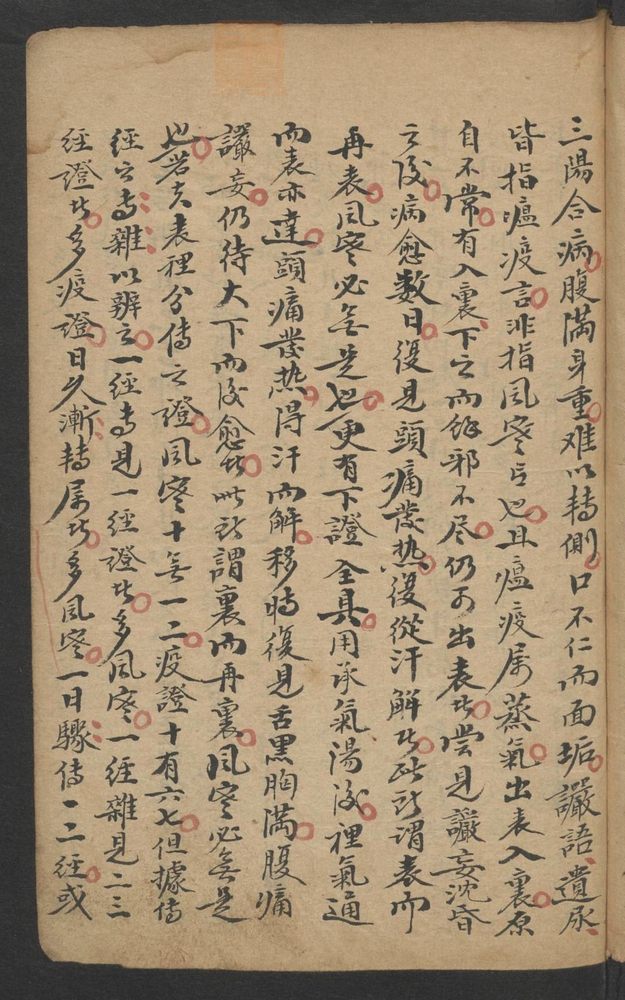 三陽合病腹滿身重难以轉側口不仁而面垢讝語遺尿
皆指瘟疫言非指風寒言也且瘟疫属蒸氣出表入裏原
自不常有入裏下之而餘邪不尽仍可出表者嘗見讝妄沈昏
之後病愈数日復見頭痛發热復從汗解者此所謂表而
再表風寒必無是也更有下證全具用承氣湯後裡氣通
而表亦達頭痛發热得汗而解移時復見舌黑胸滿腹痛
讝妄仍待大下而後愈者此所謂裏而再裏風寒必無是
也若夫表裡分傳之證風寒十無一二疫證十有六七但據傳
經之專雜以辨之一經專見一經證者多風寒一經雜見二三
經證者多疫證日久漸轉属者多風寒一日驟傳一二經或